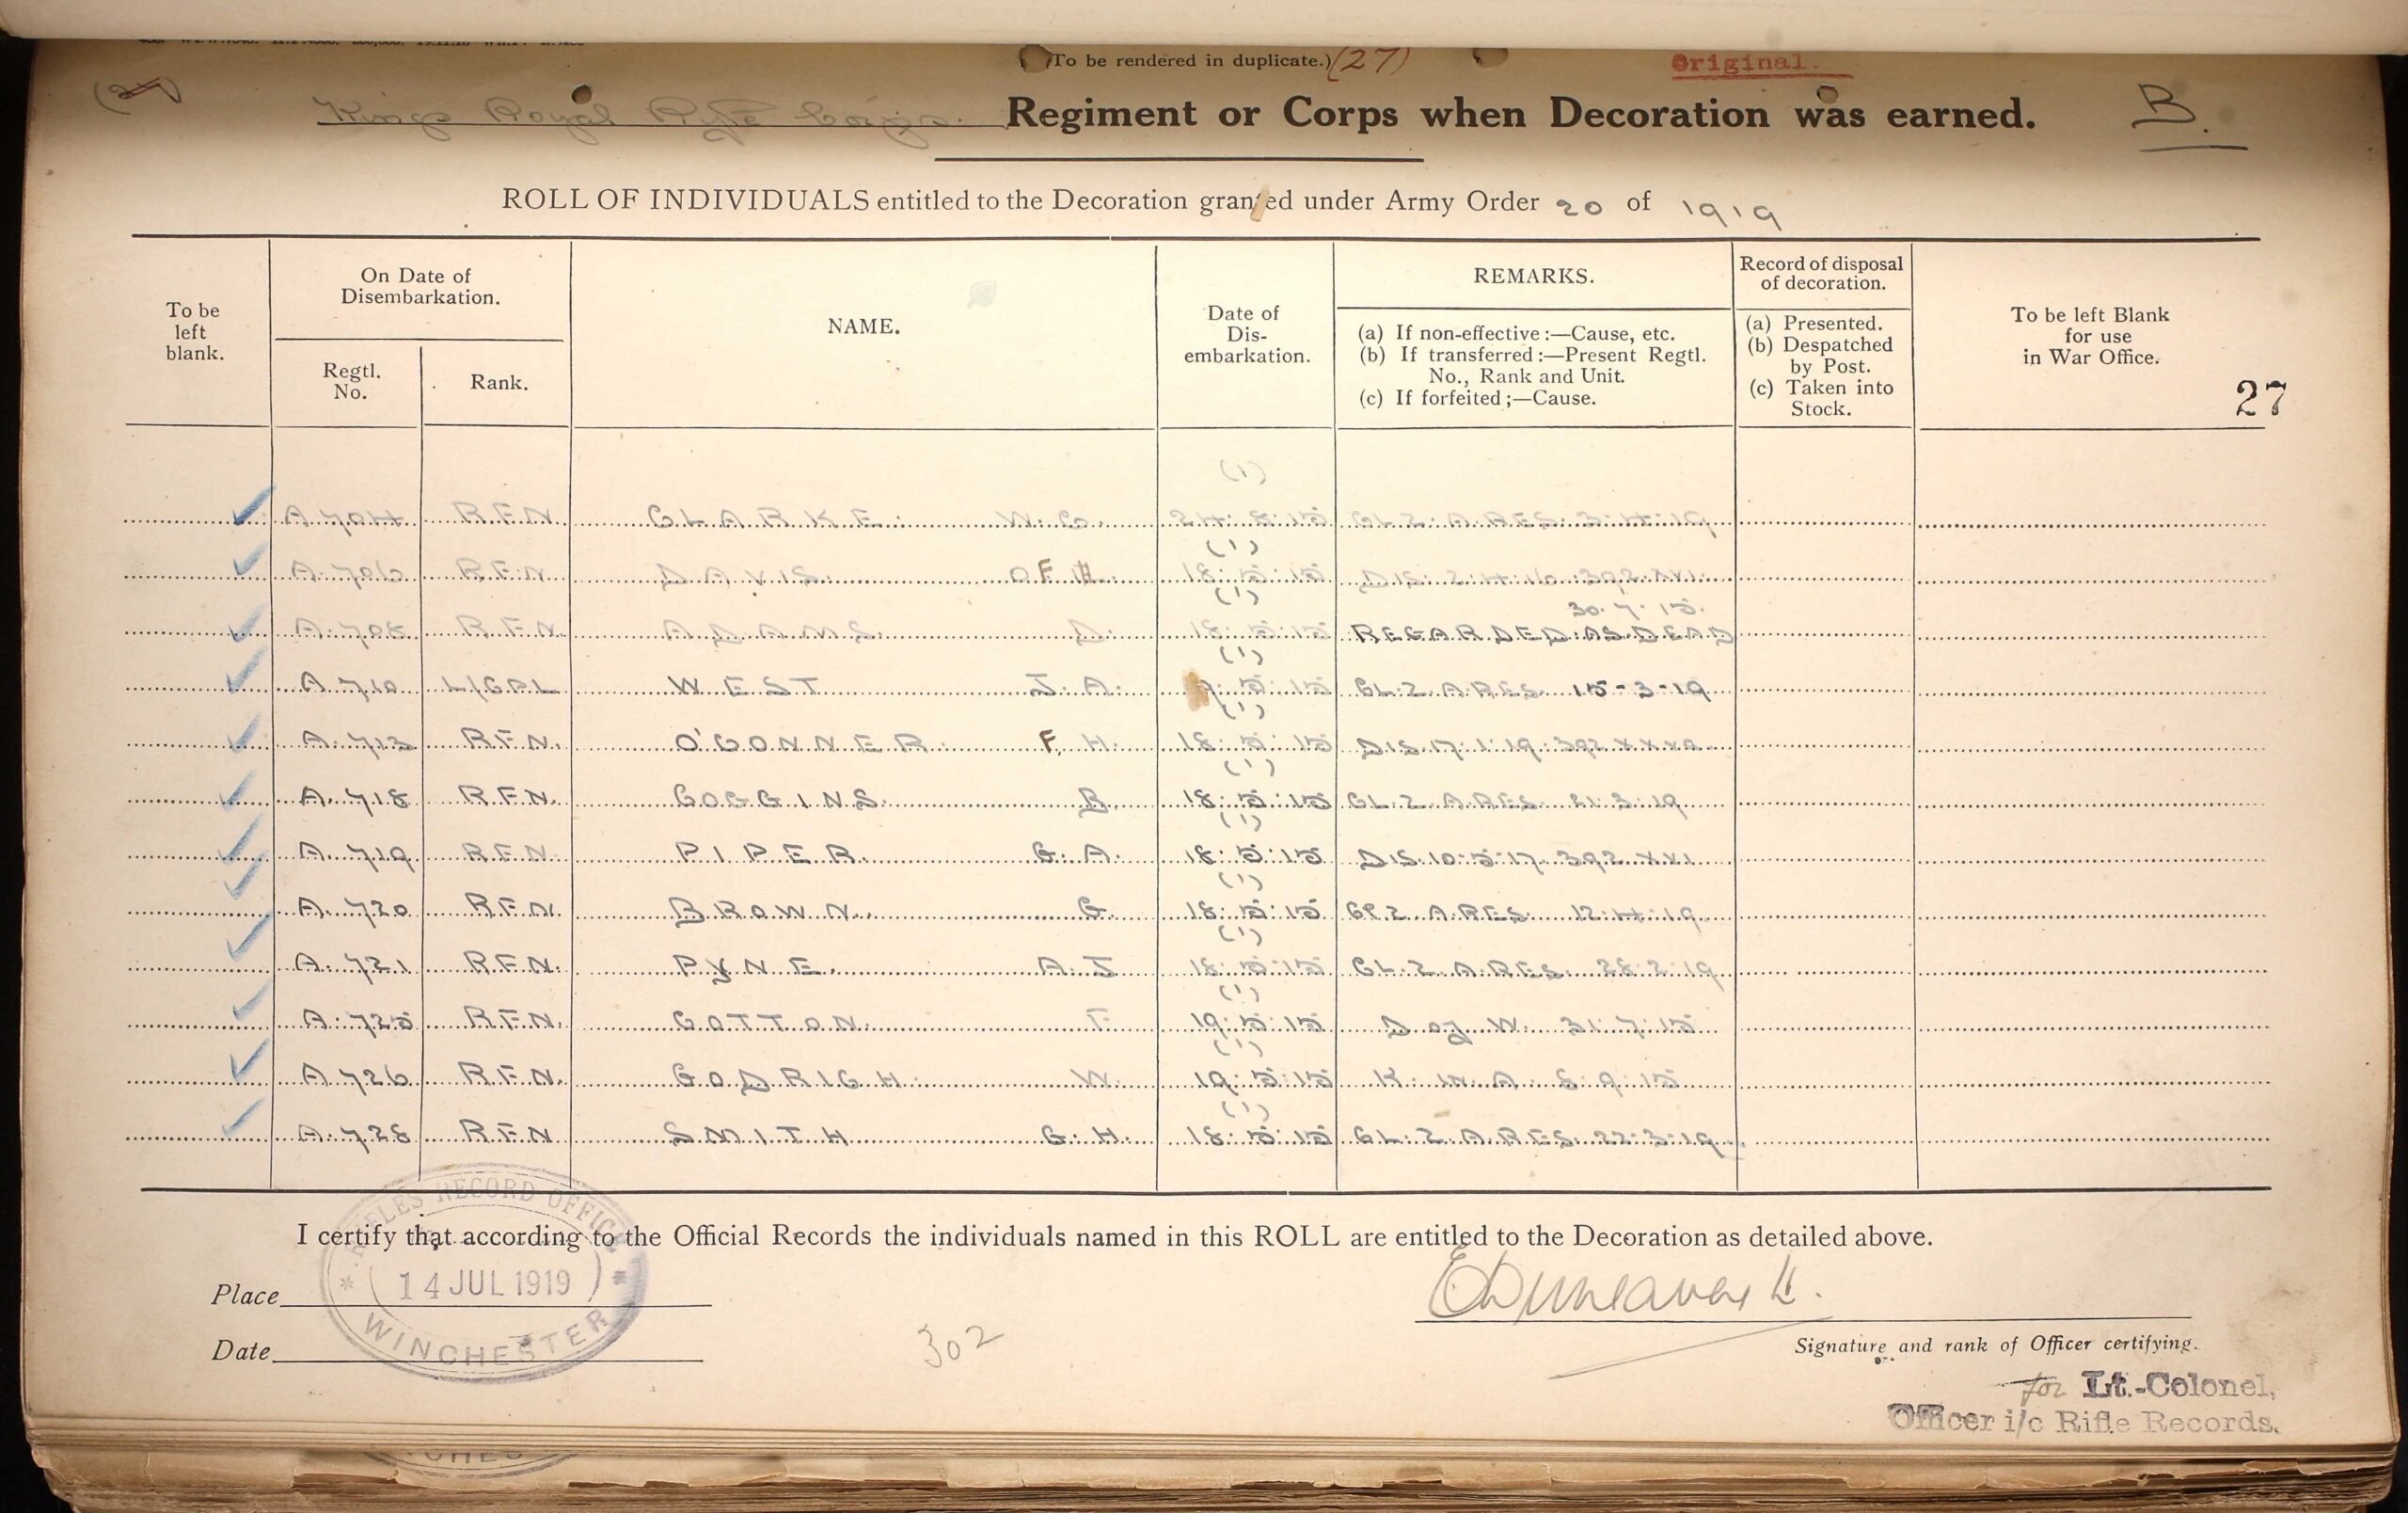 (To be rendered in duplicate.) (27) Original.
(27)
Kings Royal Rifle Corps. Regiment or Corps when Decoration was earned. B.
ROLL OF INDIVIDUALS entitled to the Decoration granted under Army Order 20 of 1919
To be left blank.
On Date of Disembarkation.
Regtl. No.
Rank.
NAME.
Date of Dis-embarkation.
REMARKS.
(a) If non-effective:—Cause, etc.
(b) If transferred:—Present Regtl. No., Rank and Unit.
(c) If forfeited;—Cause.
Record of disposal of decoration.
(a) Presented.
(b) Despatched by Post.
(c) Taken into Stock.
To be left Blank for use in War Office.
27
(1)
A 704 RFN CLARKE W. C. 24. 8. 15 CL. Z. A. RES. 3. 4. 19
(1)
A. 706 RFN DAVIS. F 18. 5. 15 DIS. 2. 4. 16. 392. XVI.
(1) 30. 7. 15.
A. 708 RFN. ADAMS. D. 18. 5. 15 REGARDED AS DEAD
(1)
A 710 L/CPL WEST J. A. 5. 15 CL. Z. A. RES. 15-3-19
(1)
A. 713 RFN. O'CONNER F. H. 18. 5. 15 DIS. 17. 1. 19. 392
(1)
A. 718 RFN. COGGINS. B. 18. 5. 15 CL. Z. A. RES. 21. 3. 19
(1)
A. 719 RFN PIPER. G. A. 18. 5. 15 DIS. 10. 5. 17. 392. XVI
(1)
A. 720 RFN. BROWN. G. 18. 5. 15 A. RES. 12. 4. 19
(1)
A. 721 RFN. PYNE. A. J 18. 5. 15 CL. Z. A. RES. 28. 2. 19
(1)
A. 725 RFN. COTTON. F 19. 5. 15 D of W. 31. 7. 15
(1)
A 726 RFN. GODRICH. W. 19. 5. 15 K. IN A 8. 9. 15
(1)
A. 728 RFN SMITH G. H. 18. 5. 15 CL. Z. A. RES. 22. 3. 19
I certify that according to the Official Records the individuals named in this ROLL are entitled to the Decoration as detailed above.
RIFLES RECORD OFFICE
* (14 JUL 1919) *
WINCHESTER
Place
Date
302
Signature and rank of Officer certifying.
for Lt.-Colonel,
Officer i/c Rifle Records.